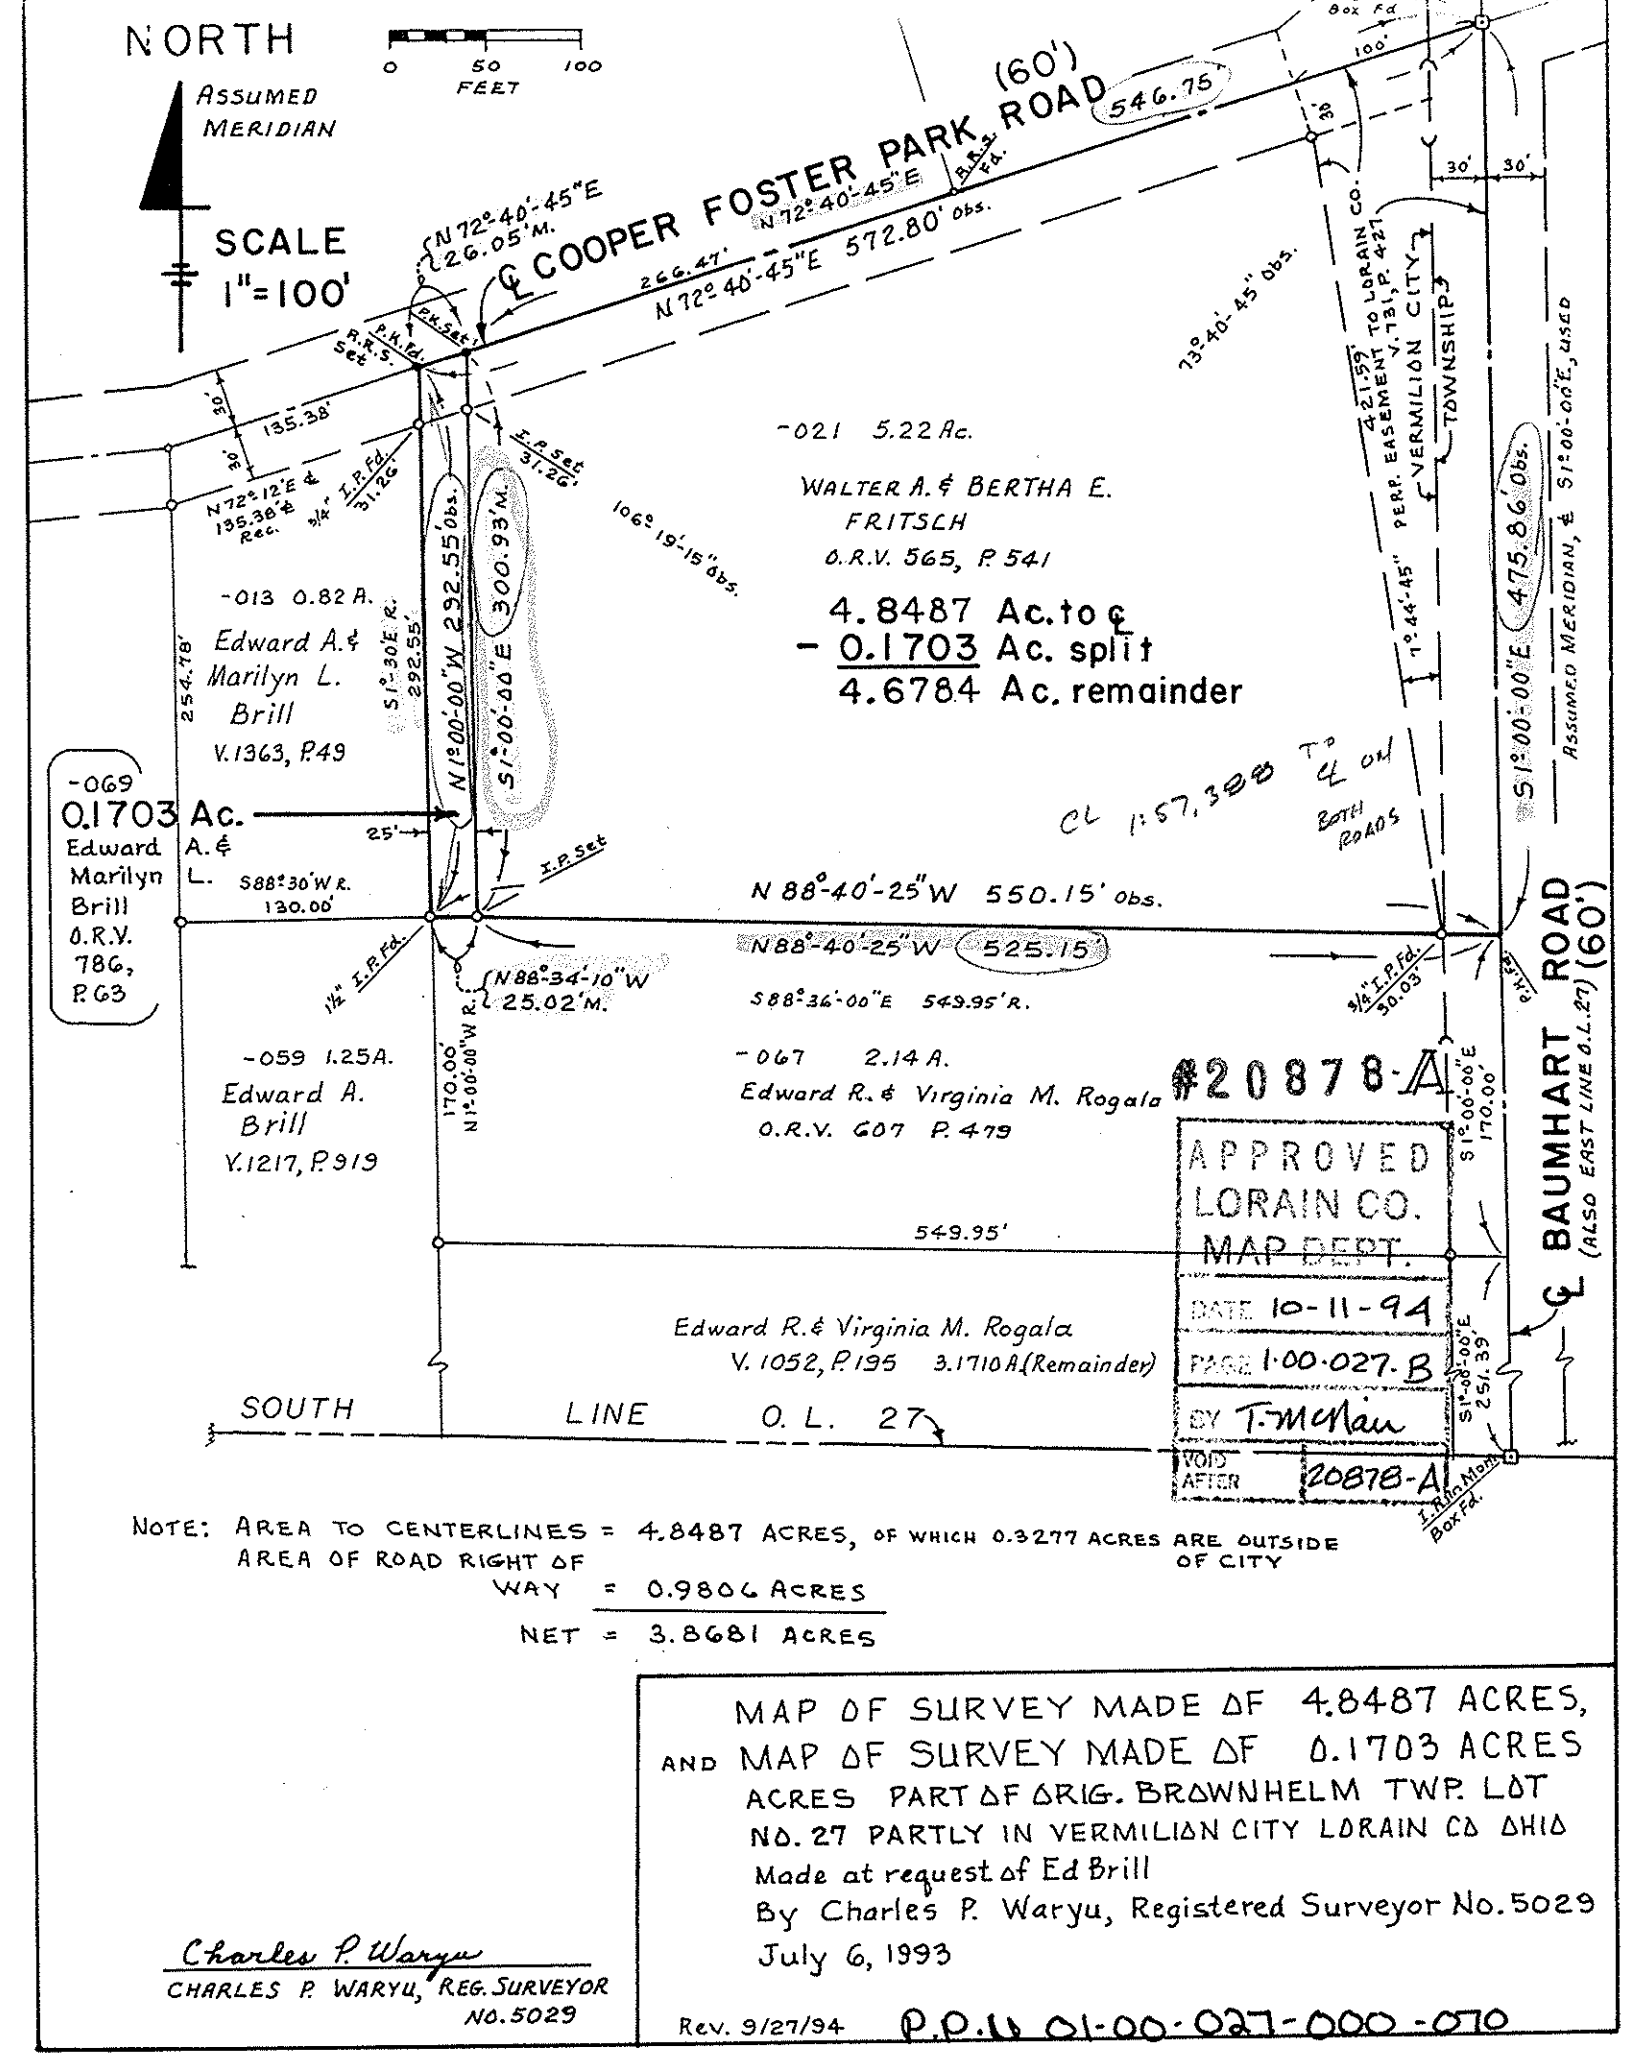 NORTH
ASSUMED
MERIDIAN
0 50 100
FEET
SCALE
1"=100'
Box Fd
(60')
℄ COOPER FOSTER PARK ROAD
546.75'
100'
30'
30' 30'
N 72°-40'-45"E
26.05'M.
R.R.S.
Fd.
N 72°-40'-45"E
266.47'
N 72°-40'-45"E 572.80' Obs.
P.K. Set
P.K. Fd.
R.R.S.
Set
30'
30'
135.38'
N 72°12'E &
135.38' &
Rec.
3/4" I.P. Fd.
31.26'
I.P. Set
31.26'
106°-19'-15" Obs.
73°-40'-45" Obs.
421.59'
PERP. EASEMENT TO LORAIN CO.
V.731, P. 427
VERMILION CITY
TOWNSHIP
7°-44'-45"
S1°-00'-00"E 475.86' Obs.
ASSUMED MERIDIAN, & S1°-00'-00"E, USED
-021 5.22 Ac.
WALTER A. & BERTHA E.
FRITSCH
O.R.V. 565, P. 541
4.8487 Ac. to ℄
- 0.1703 Ac. split
4.6784 Ac. remainder
CL 1:57,388 TO ℄ ON
BOTH
ROADS
-013 0.82 A.
Edward A. &
Marilyn L.
Brill
V.1363, P.49
254.78'
S1°-30'E R.
292.55'
N1°-00'-00"W 292.55' Obs.
S1°-00'-00"E 300.93'M.
-069
0.1703 Ac.
Edward A. &
Marilyn L.
Brill
O.R.V.
786,
P. 63
25'
S88°30'W R.
130.00'
I.P. Set
N 88°-40'-25"W 550.15' Obs.
N88°-40'-25"W 525.15'
S88°-36'-00"E 549.95'R.
1/2" I.P. Fd.
N88°-34'-10"W
25.02'M.
3/4" I.P. Fd.
30.03'
P.K. Set
-059 1.25A.
Edward A.
Brill
V.1217, P.919
170.00'
N1°-00'-00"W R.
-067 2.14 A.
Edward R. & Virginia M. Rogala
O.R.V. 607 P. 479
#20878-A
APPROVED
LORAIN CO.
MAP DEPT.
DATE 10-11-94
PAGE 1.00.027.B
BY T. McNair
VOID
AFTER 20878-A
S1°-00'-00"E
170.00'
℄ BAUMHART ROAD (60')
(ALSO EAST LINE O.L. 27)
549.95'
Edward R. & Virginia M. Rogala
V. 1052, P. 195 3.1710A.(Remainder)
S1°-00'-00"E
251.39'
SOUTH LINE O. L. 27
I. Rin Mon.
Box Fd.
NOTE: AREA TO CENTERLINES = 4.8487 ACRES, OF WHICH 0.3277 ACRES ARE OUTSIDE
OF CITY
AREA OF ROAD RIGHT OF
WAY = 0.9806 ACRES
NET = 3.8681 ACRES
MAP OF SURVEY MADE OF 4.8487 ACRES,
AND MAP OF SURVEY MADE OF 0.1703 ACRES
ACRES PART OF ORIG. BROWNHELM TWP. LOT
NO. 27 PARTLY IN VERMILION CITY LORAIN CO OHIO
Made at request of Ed Brill
By Charles P. Waryu, Registered Surveyor No. 5029
July 6, 1993
Rev. 9/27/94 P.P.N 01-00-027-000-070
Charles P. Waryu
CHARLES P. WARYU, REG. SURVEYOR
NO. 5029